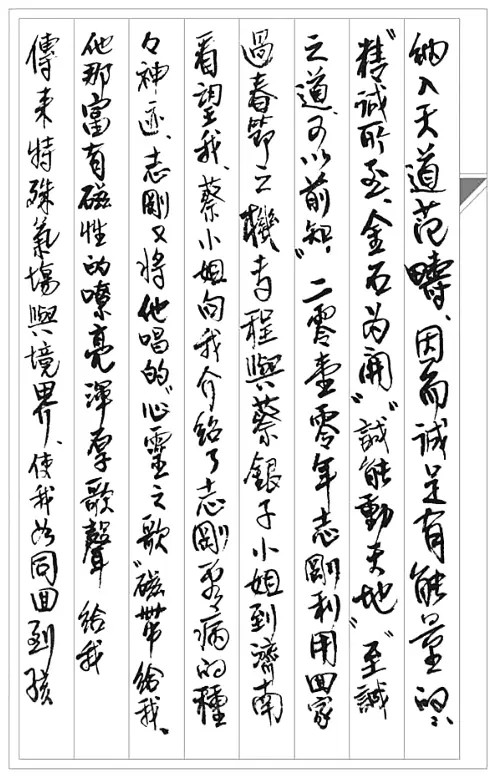 納入天道范疇、因而誠是有能量的、
"精誠所至、金石为開""誠能動天地""至誠
之道、可以前知"、二零壹零年志剛利用回家
過春節之機专程與蔡銀子小姐到濟南
看望我、蔡小姐向我介紹了志剛看病的種
々神迹、志剛又将他唱的"心靈之歌"磁带给我、
他那富有磁性的嘹亮渾厚歌聲给我
傳来特殊氣場與境界、使我如同回到孩